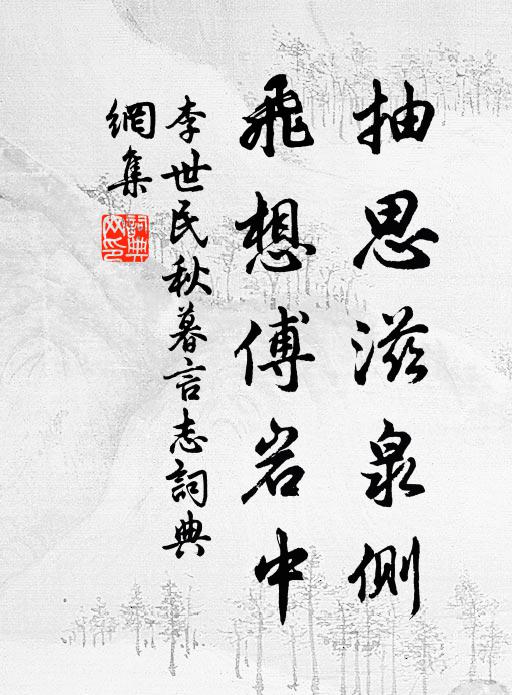 抽思滋泉側
飛想傅岩中
李世民秋暮言志詞典
網集
詞典
网印